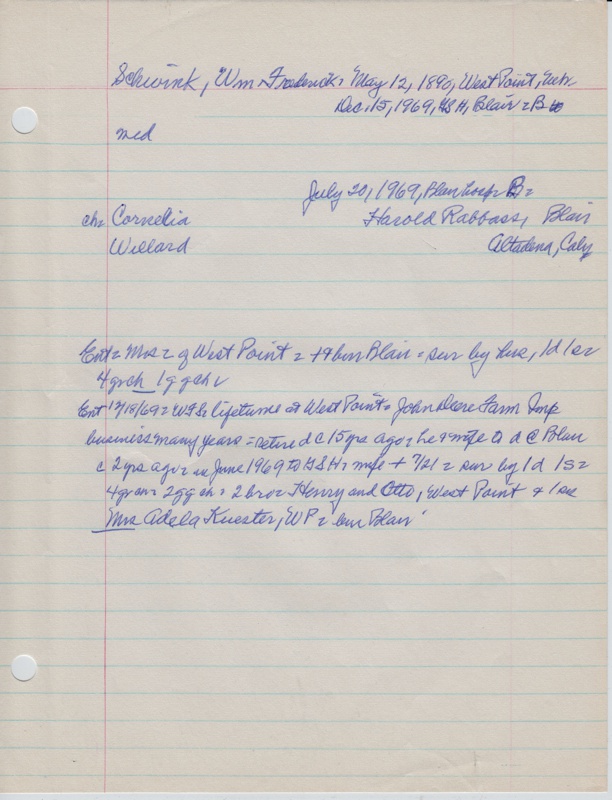 Schwink, Wm Frederick = May 12, 1890, West Point, Nebr
Dec. 15, 1969, GSH, Blair = B
med
July 20, 1969, Blair hosp B =
ch = Cornelia Harold Rabbass, Blair
Willard Altadena, Calif
Ent = Mrs = of West Point = + bur Blair = sur by hus, 1d 1s =
4 grch 1 ggch
Ent 12/18/69 = W lifetime at West Point = John Deere Farm Imp
business many years = retired c 15 yrs ago = he & wife to d @ Blair
c 2 yrs ago = in June 1969 to GSH = wife + 7/21 = sur by 1d 1s =
4 grch = 2 ggch = 2 bro = Henry and Otto, West Point & 1 sis
Mrs Adela Kuester, WP = bur Blair